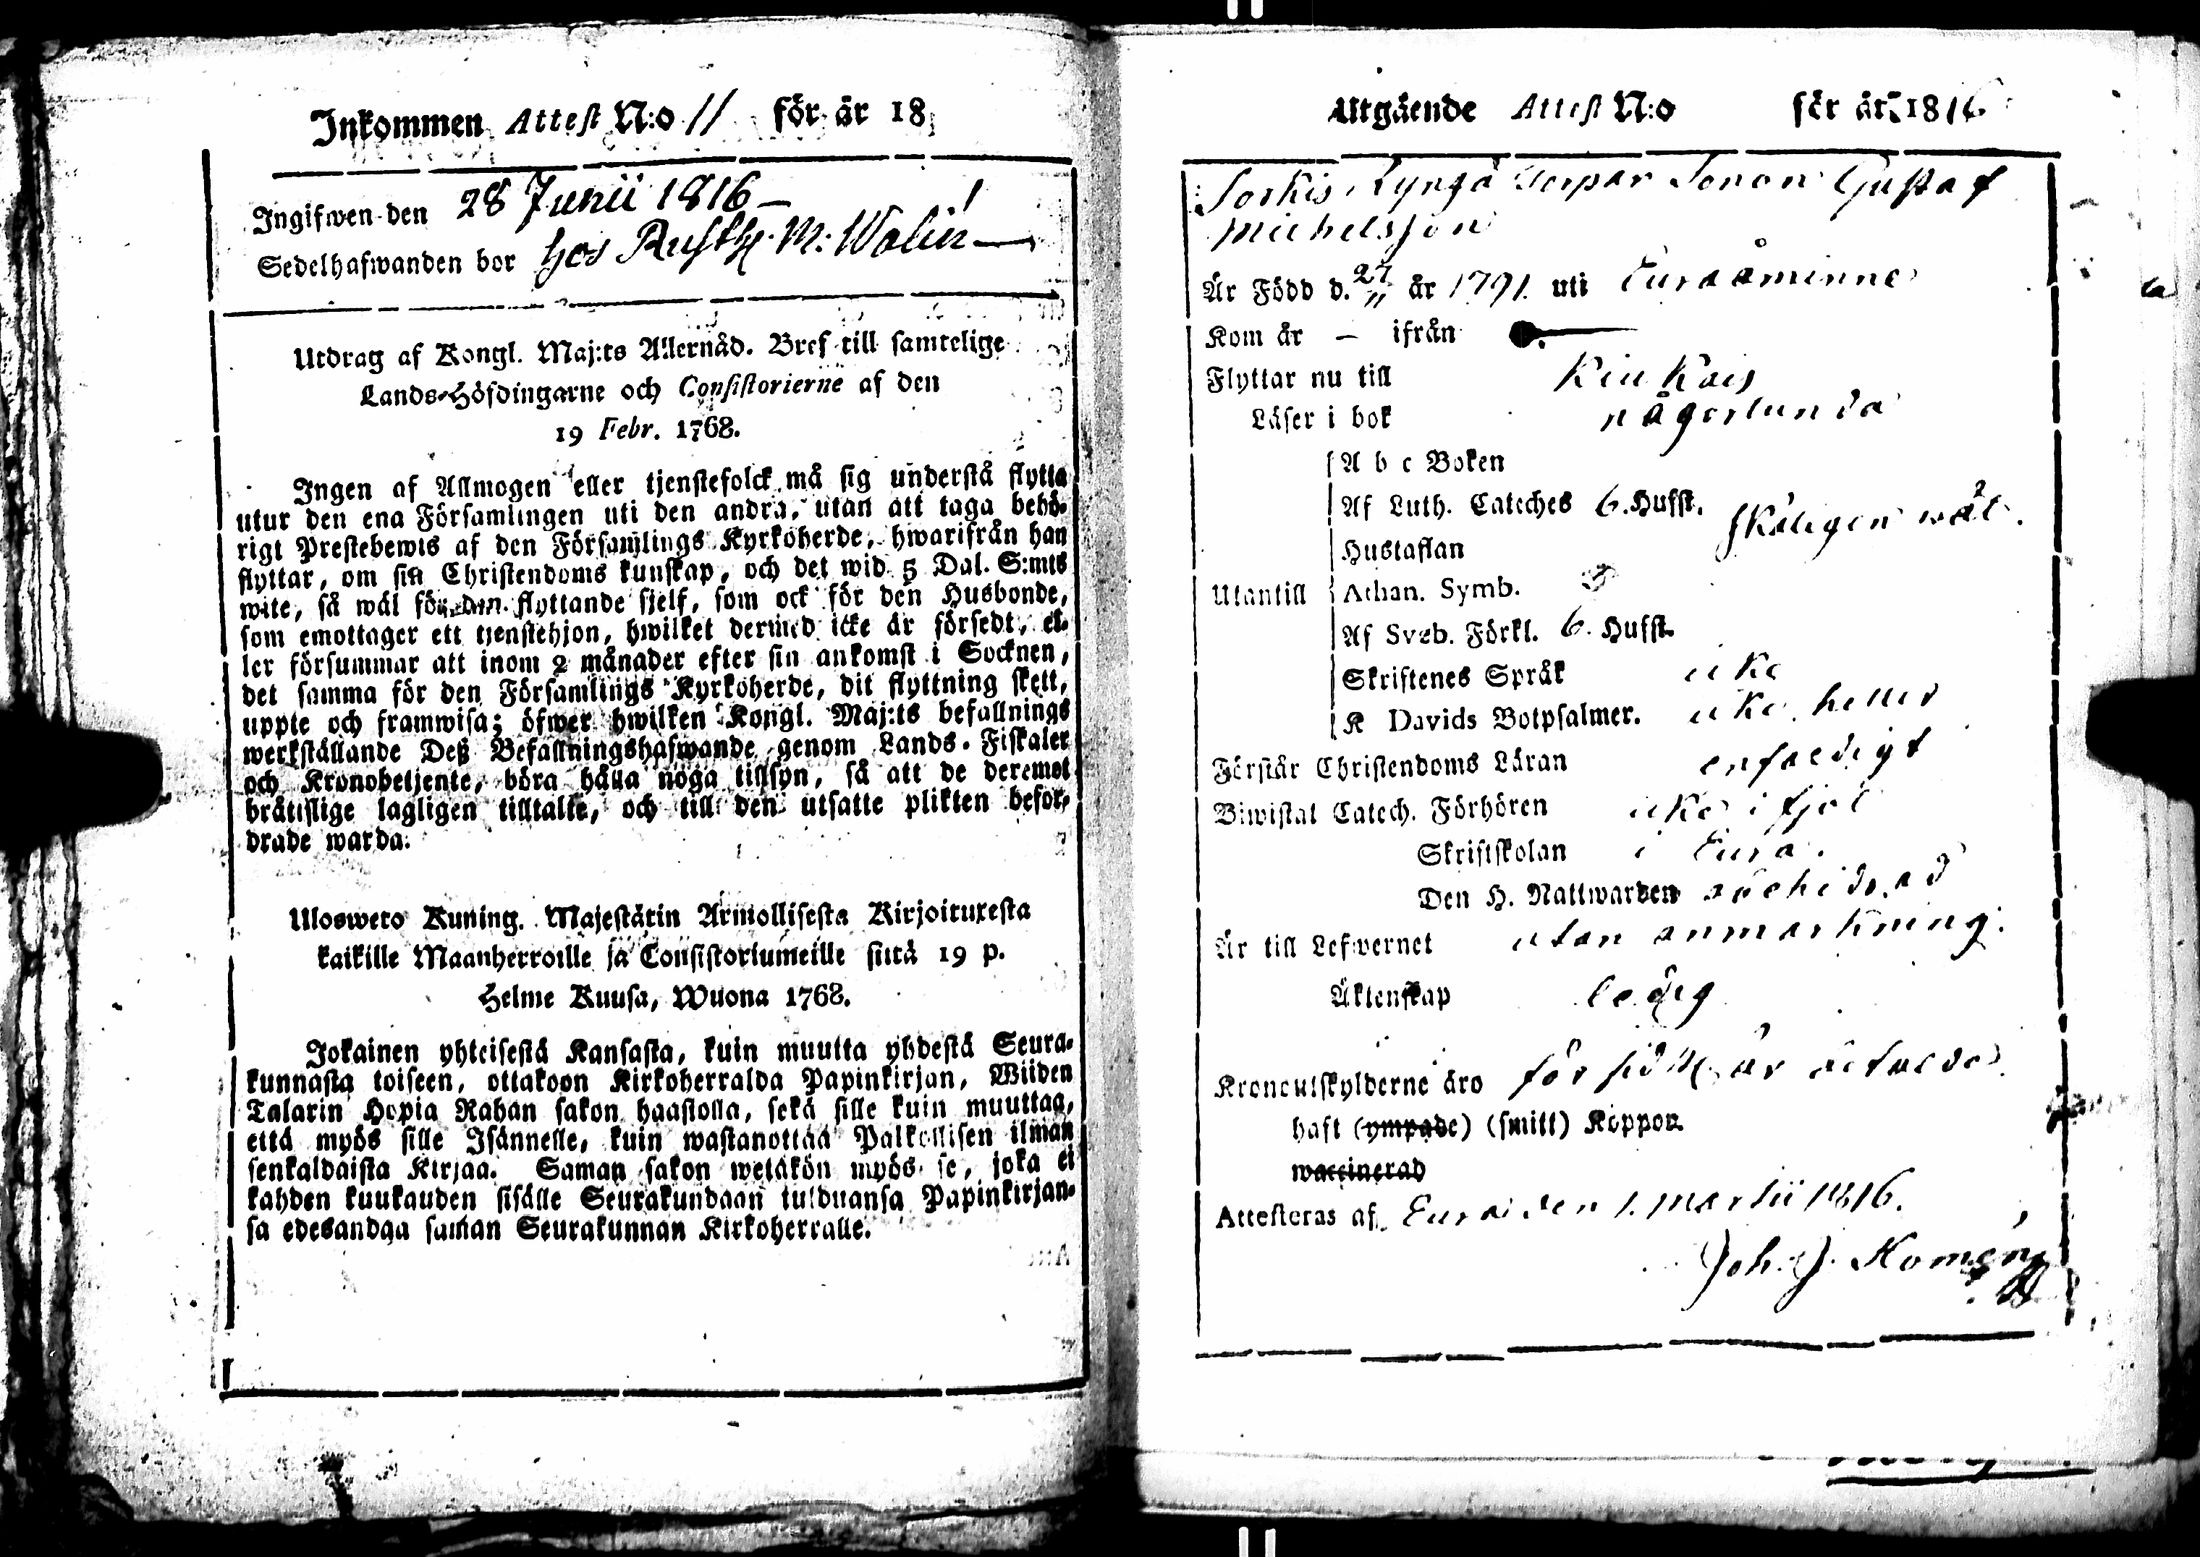 Inkommen Attest N:o 11 för år 18
Ingifwen den 28 Junii 1816 —
Sedelhafwanden bor hos Rusth. M: Wolin —
Utdrag af Kongl. Maj:ts Allernåd. Bref till samtelige
Lands-Höfdingarne och Consistorierne af den
19 Febr. 1768.
Ingen af Allmogen eller tjenstefolck må sig understå flytta
utur den ena Församlingen uti den andra, utan att taga behö-
rigt Prestebewis af den Församlings Kyrkoherde, hwarifrån han
flyttar, om sin Christendoms kunskap, och det wid 5 Dal. S:mts
wite, så wäl för den flyttande sjelf, som ock för den Husbonde,
som emottager ett tjenstehjon, hwilket dermed icke är försedt, el-
ler försummar att inom 2 månader efter sin ankomst i Socknen,
det samma för den Församlings Kyrkoherde, dit flyttning skett,
uppte och framwisa; öfwer hwilken Kongl. Maj:ts befallnings
werkställande Deß Befallningshafwande genom Lands-Fiskaler
och Kronobetjente, böra hålla noga tillsyn, så att de deremot
bråtislige lagligen tilltalte, och till den utsatte plikten befor-
drade warda.
Ulosweto Kuning. Majestätin Armollisesta Kirjoituxesta
kaikille Maanherroille ja Consistoriumeille siitä 19 p.
Helme Kuusa, Wuona 1768.
Jokainen yhteisestä Kansasta, kuin muutta yhdestä Seura-
kunnasta toiseen, ottakoon Kirkoherralda Papinkirjan, Wiiden
Talarin Hopia Rahan sakon haastolla, sekä sille kuin muuttaa,
että myös sille Isännelle, kuin wastanottaa Palkollisen ilman
senkaldaista Kirjaa. Saman sakon wetäkön myös se, joka ei
kahden kuukauden sisälle Seurakundaan tulduansa Papinkirjan-
sa edesandaa saman Seurakunnan Kirkoherralle.
Utgående Attest N:o för år 1816
Sorkis Gustaf
Michelsson
Är Född d. 27/11 år 1791 uti Euraåminne
Kom år — ifrån —
Flyttar nu till Kiukais
Läser i bok någorlunda
A b c Boken
Af Luth. Cateches 6. Hufst. skäligen wäl.
Hustaflan
Utantill Athan. Symb.
Af Sveb. Förkl. 6. Hufst.
Skriftenes Språk icke
K Davids Botpsalmer. icke heller
Förstår Christendoms Läran enfaldigt
Biwistat Catech. Förhören icke i fjol
Skriftskolan i Eura.
Den H. Nattwarden
Är till Lefwernet utan anmärkning.
Äktenskap ledig
Kronoutskylderne äro för sidst. år
haft (ympade) (smitt) Koppor
waccinerad
Attesteras af, Eura den 1. Martii 1816.
Joh. J.